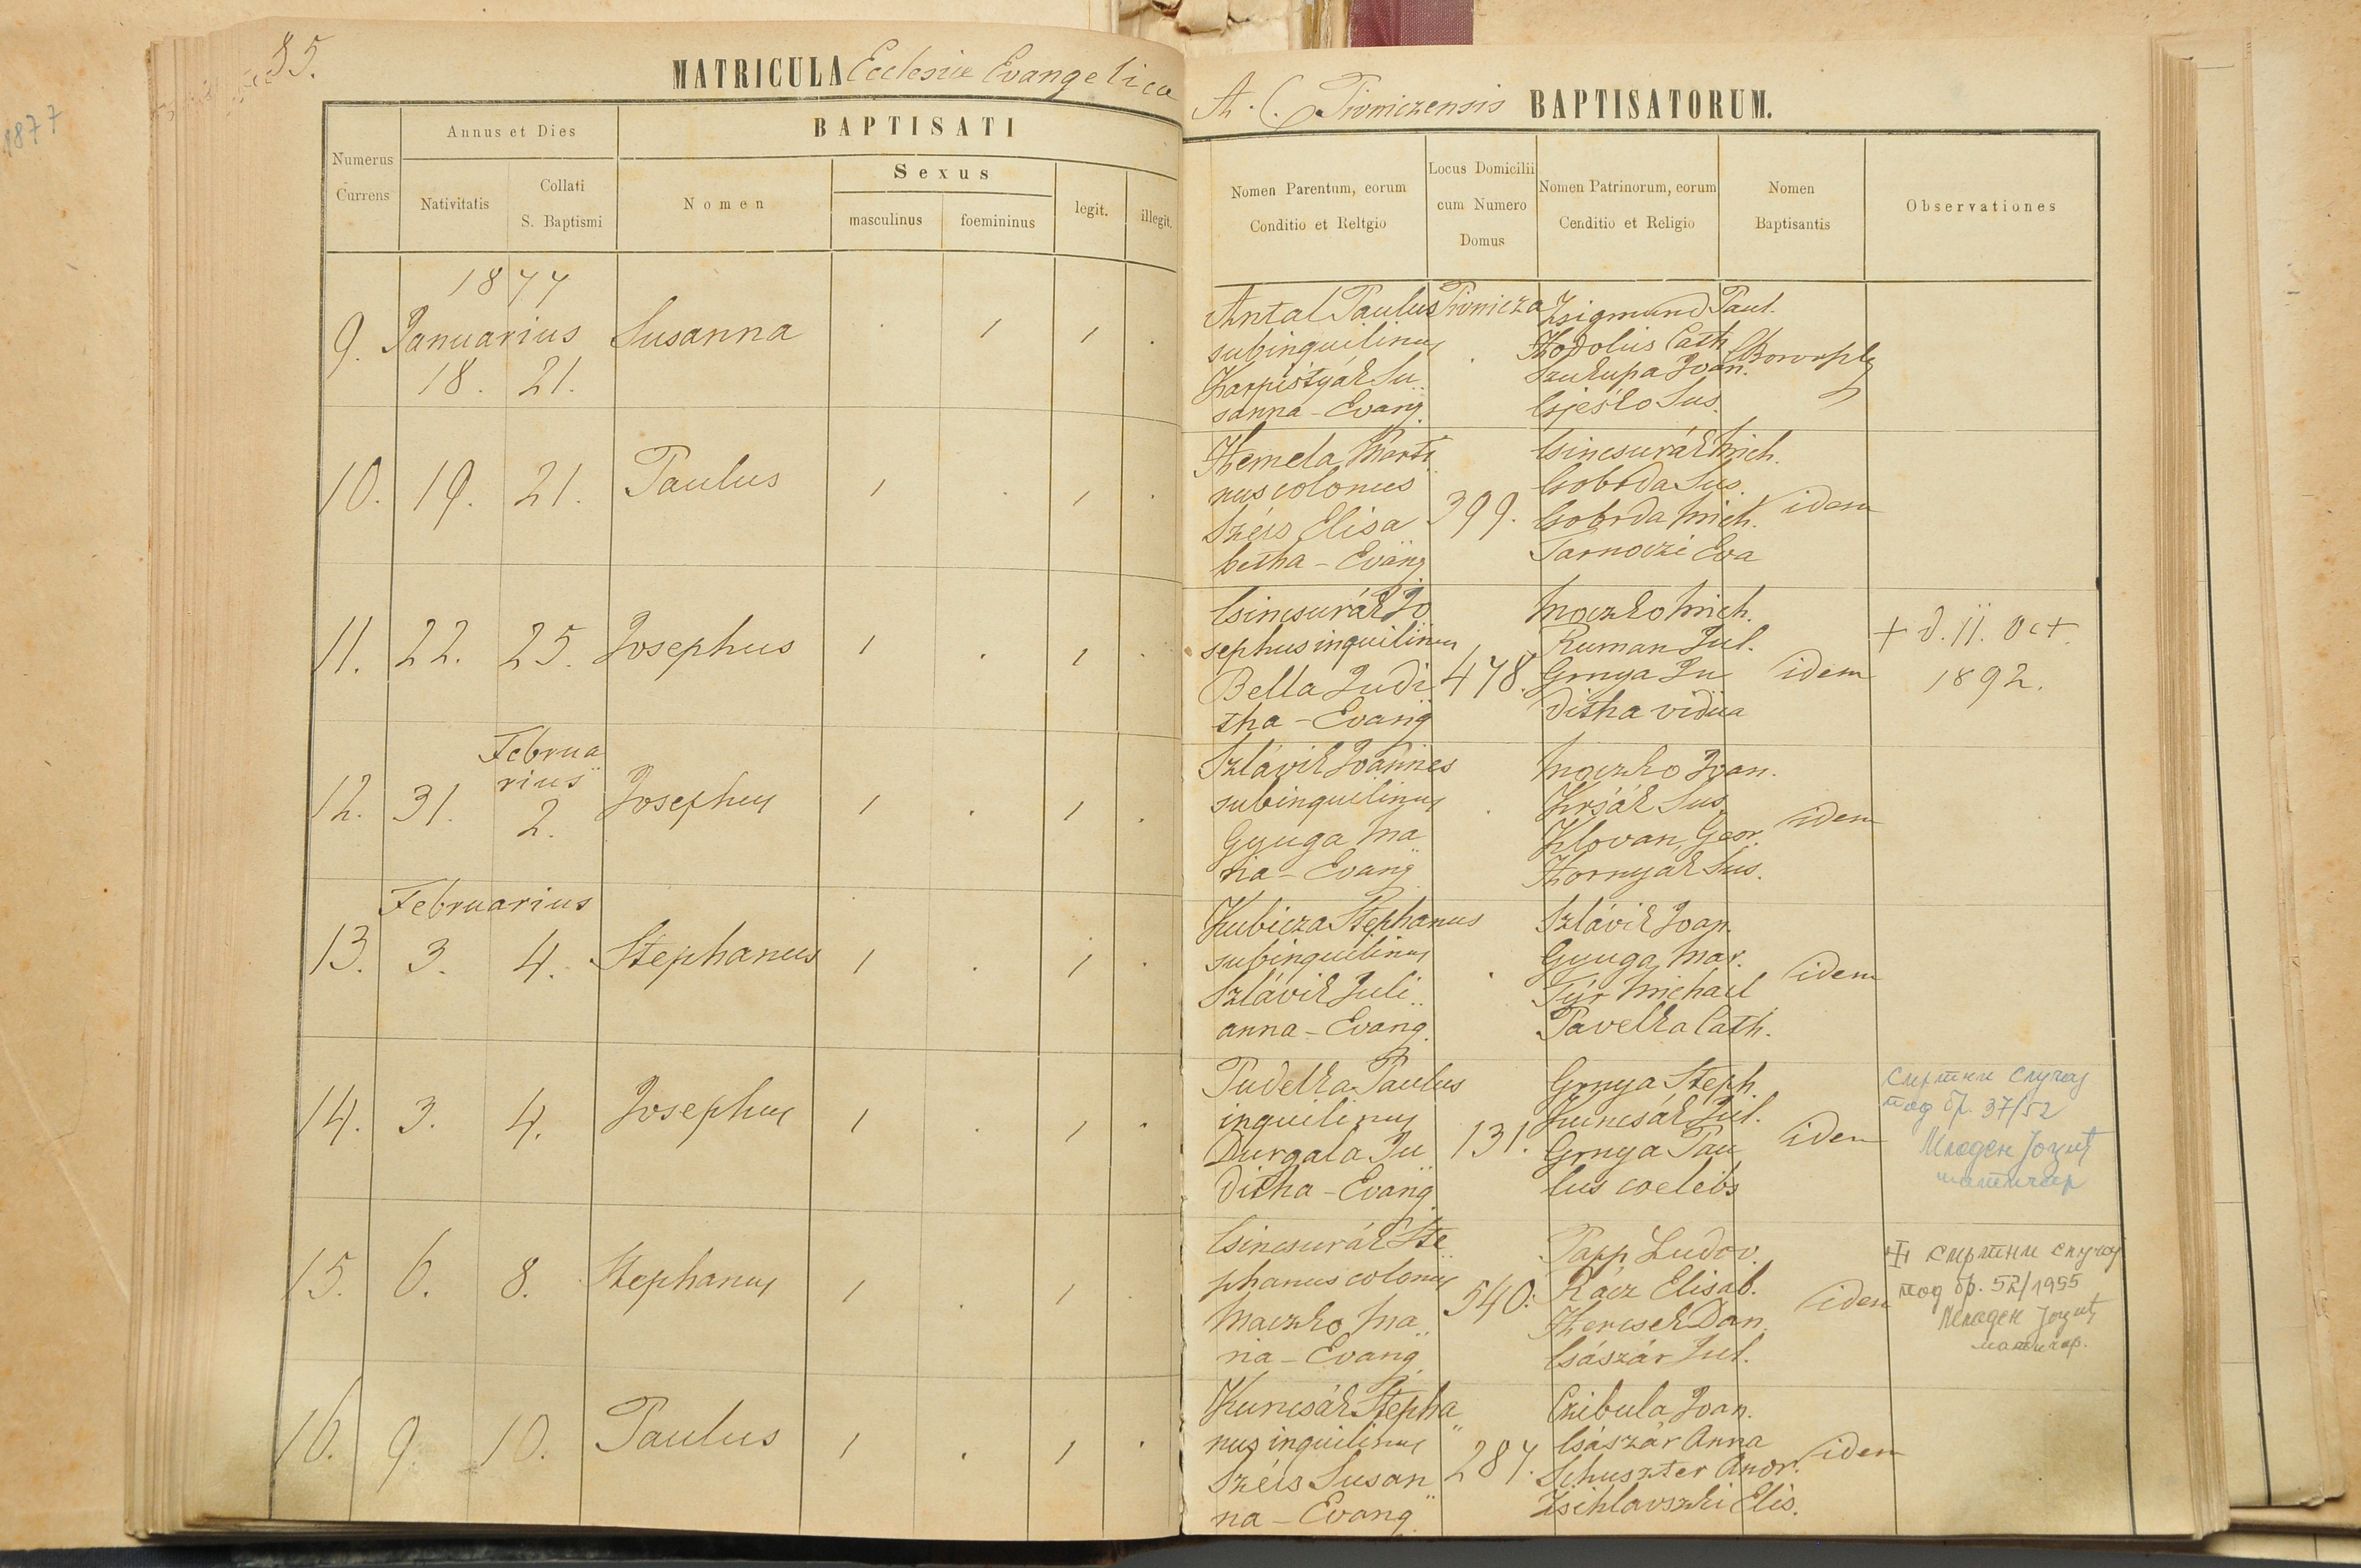 1877
85.
MATRICULA Ecclesiæ Evangelicæ
A. C. Pivniczensis BAPTISATORUM.
Numerus Currens
Annus et Dies
Nativitatis
Collati S. Baptismi
BAPTISATI
Nomen
Sexus
masculinus
foemininus
legit.
illegit.
Nomen Parentum, eorum
Conditio et Reltgio
Locus Domicilii
cum Numero
Domus
Nomen Patrinorum, eorum
Cenditio et Religio
Nomen
Baptisantis
Observationes
1877
9. Januarius Susanna
18. 21.
Antal Paulus
subinquilinus
Karpistyák Su
sanna - Evang.
Pivnicza
Zsigmund Paul.
Hodolius Cath.
Szukupa Joan.
Csjesko Sus.
10. 19. 21. Paulus
Hemela Marti
nus colonus
Széis Elisa
betha - Evang.
399.
Csincsurák Mich.
Gobrda Sus.
Gobrda Mich.
Tarnoczi Eva
idem
11. 22. 25. Josephus
Csincsurák Jo
sephus inquilinus
Bella Judi
tha - Evang.
478.
Moczko Mich.
Ruman Jul.
Grnya Ju
ditha vidua
idem
+ d. 11. Oct.
1892.
Februa
rius
12. 31. 2. Josephus
Szlávik Joannes
subinquilinus
Gyuga Ma
ria - Evang.
Moczko Joan.
Krsák Sus.
Klovan Geor.
Hornyák Sus.
idem
Februarius
13. 3. 4. Stephanus
Kubicza Stephanus
subinquilinus
Szlávik Juli
anna - Evang.
Szlávik Joan.
Gyuga Mar.
Týr Michael
Pavelka Cath.
idem
14. 3. 4. Josephus
Pudelka Paulus
inquilinus
Durgala Ju
ditha - Evang.
131.
Grnya Steph.
Kuncsák Jul.
Grnya Pau
lus coelebs
idem
смртни случај
под бр. 37/52
Младен
матичар
15. 6. 8. Stephanus
Csincsurák Ste
phanus colonus
Maczko Ma
ria - Evang.
540.
Papp Ludov.
Rácz Elisab.
Hercsek Dan.
Császár Jul.
idem
смртни случај
под бр. 52/1955
Младен
матичар.
16. 9. 10. Paulus
Kuncsák Stepha
nus inquilinus
Széis Susan
na - Evang.
287.
Czibula Joan.
Császár Anna
Schuszter Andr.
Zsihlavszki Elis.
idem